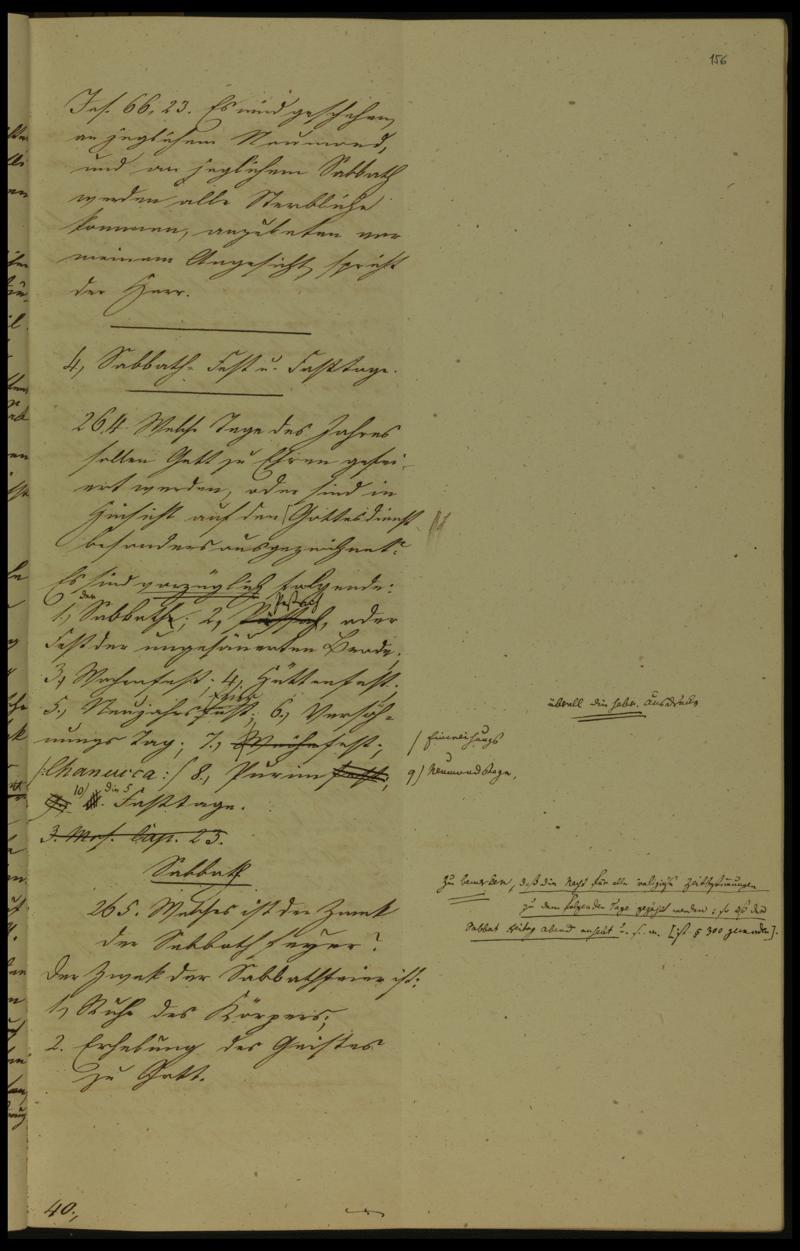 156
Jes. 66, 23. Es wird geschehen,
an jeglichem Neumond,
und an jeglichem Sabbath
werden alle Sterbliche
kommen, anzubeten vor
meinem Angesicht, spricht
der Herr.
4, Sabbath- Fest u. Fasttage.
264. Welche Tage des Jahres
sollen Gott zu Ehren gefei-
ert werden, oder sind in
Hinsicht auf den Gottesdienst
besonders ausgezeichnet?
Es sind vorzüglich folgende:
1, der Sabbath; 2, Pessach, oder
Fest der ungesäuerten Brode;
3, Wochenfest; 4, Hüttenfest;
5, Neujahrsfest; 6, Versöh-
nungs Tag; 7, Weihefest;
/:Chanucca:/ 8, Purimfest;
10) die 5 Fasttage.
3. Mos. Cap. 23.
überall die hebr. Ausdrücke
/ Einweihungs
9) Neumondstage,
Sabbath
265. Welches ist der Zweck
der Sabbathfeyer?
Der Zweck der Sabbathfeier ist:
1, Ruhe des Körpers;
2. Erhebung des Geistes
zu Gott.
zu bemerken, daß die Nacht für alle religiöse Zeitbestimmungen
zu dem folgenden Tage gezählt werden; so daß der
Sabbat Freitag Abend anfängt u. s. w. [ist § 300 zu wenden].
40,